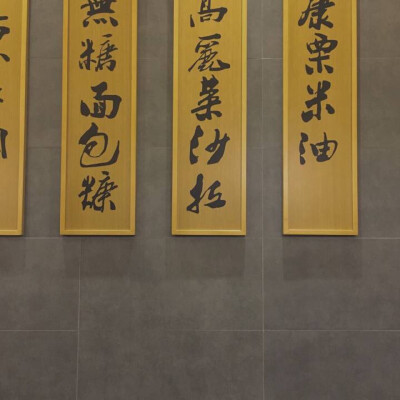 康粟米油
高麗菜沙拉
無糖面包糠